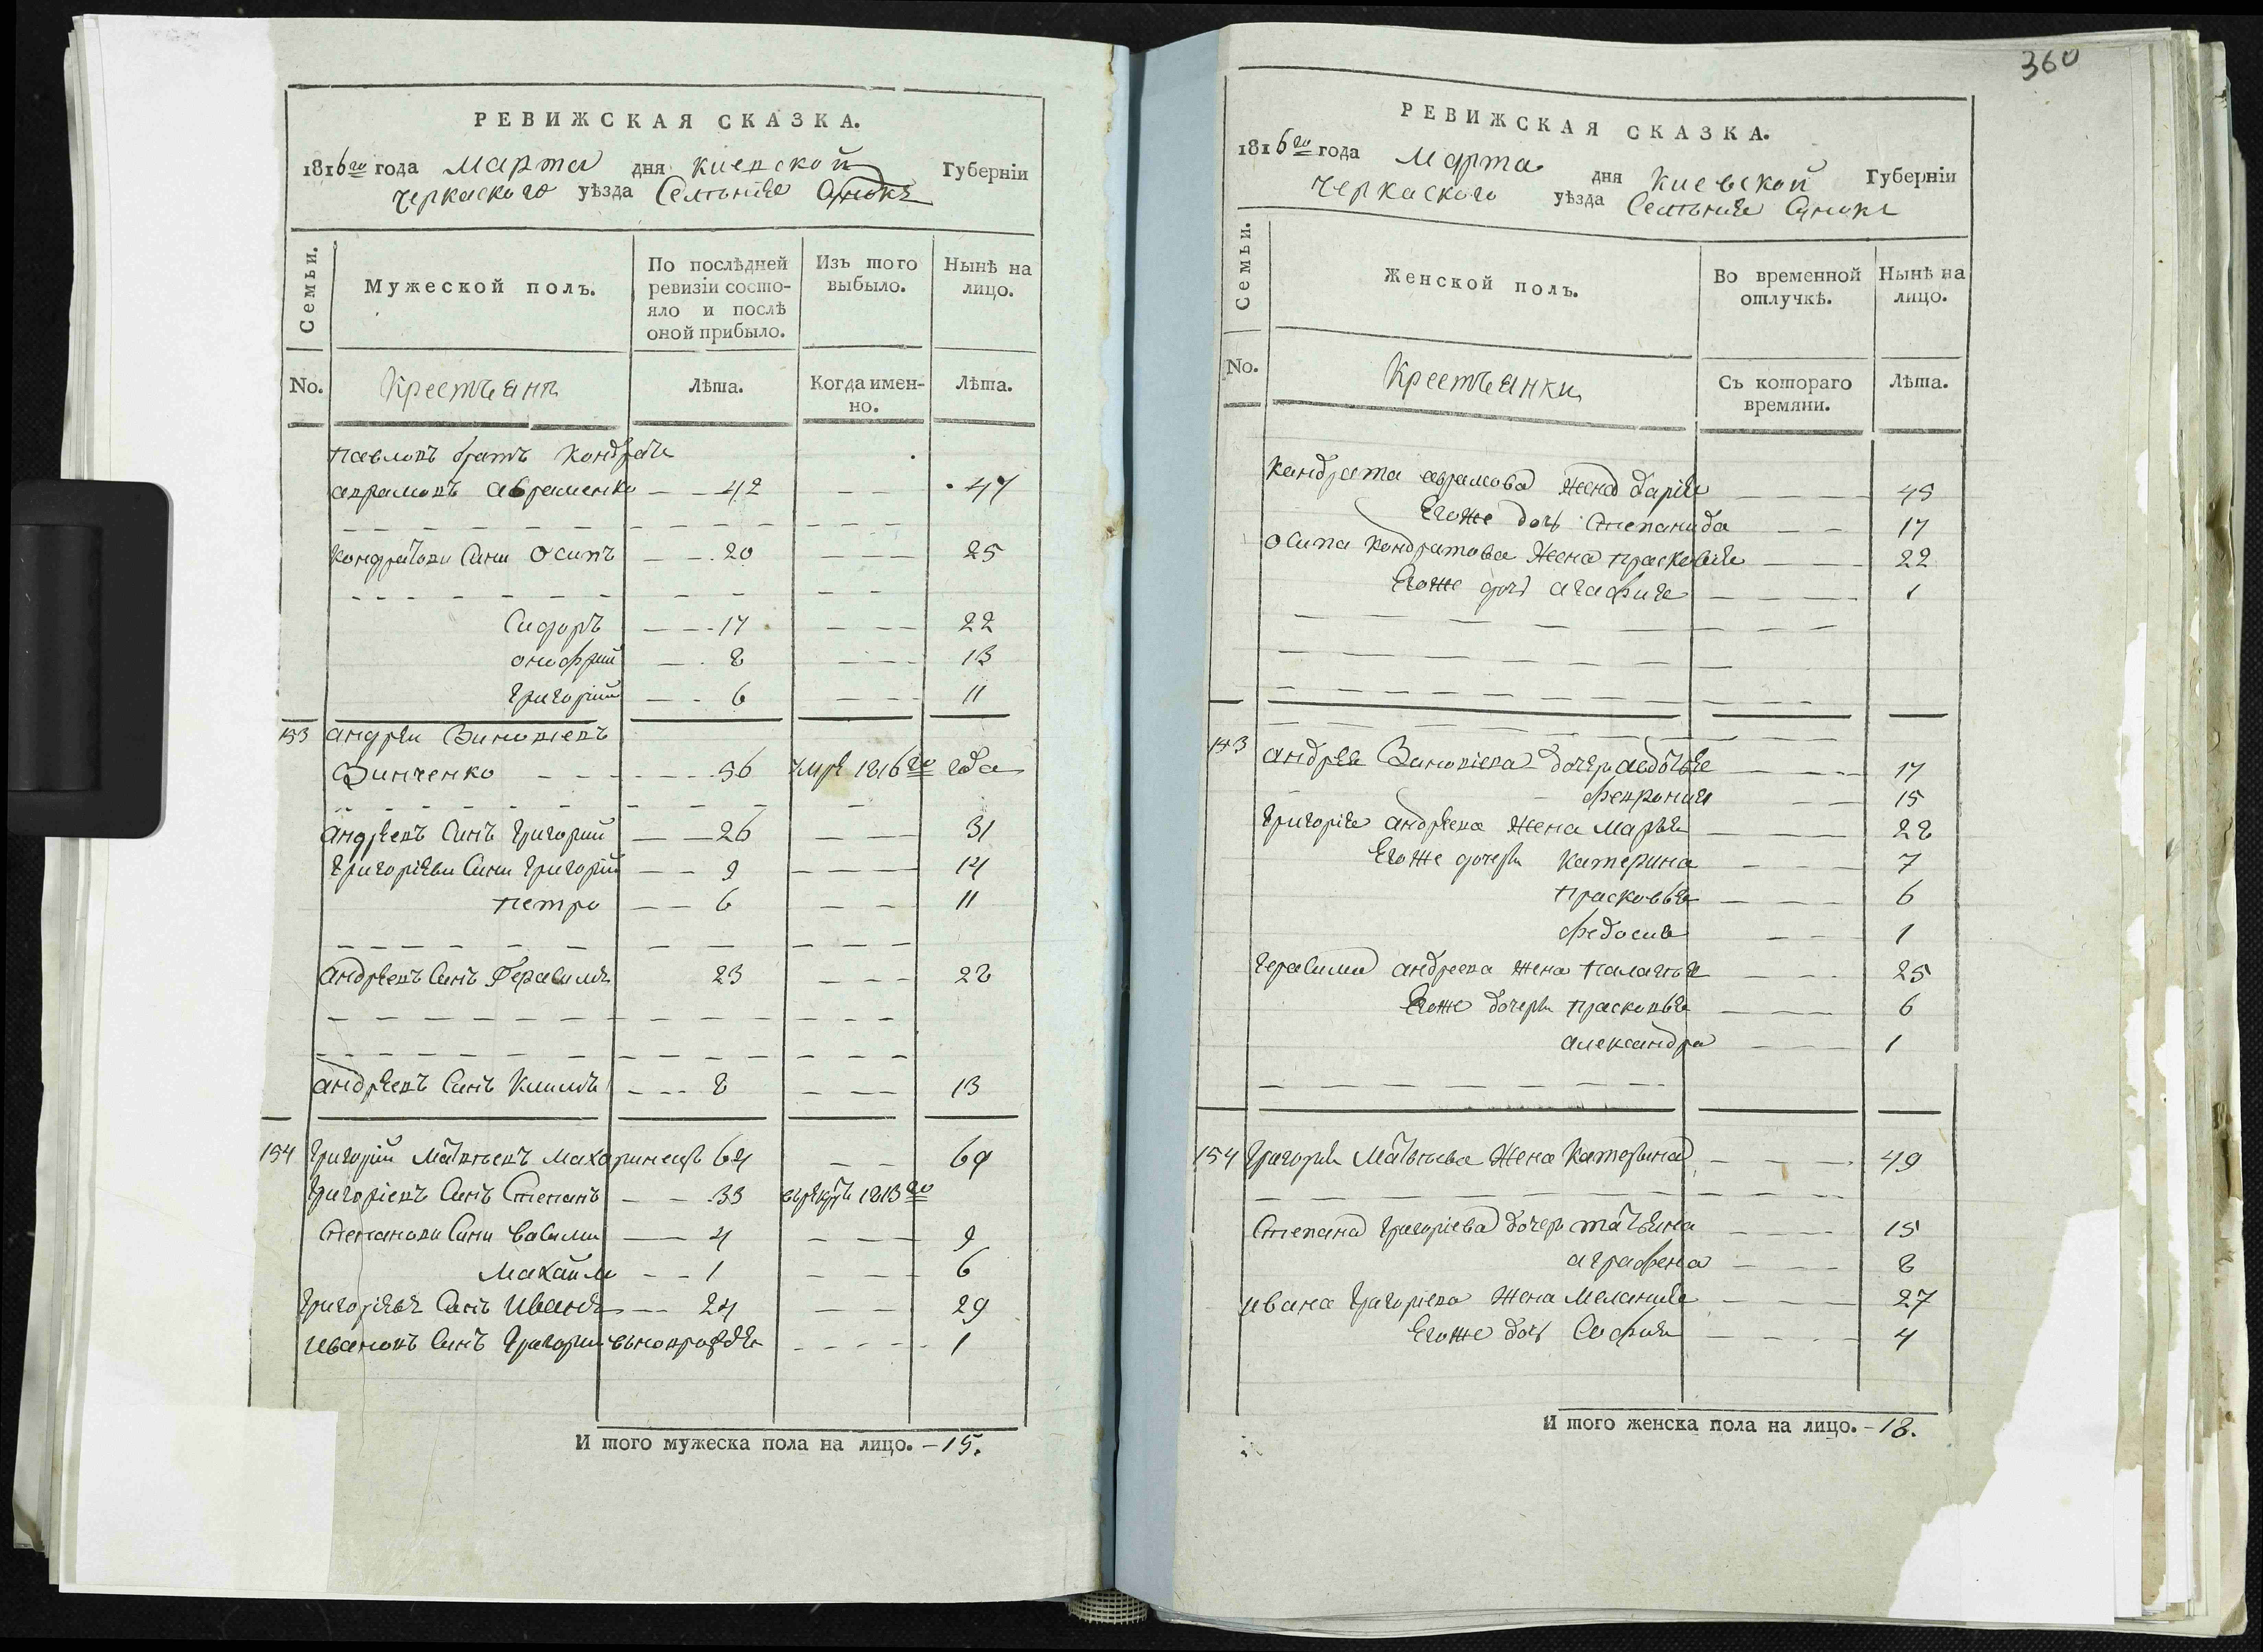 РЕВИЖСКАЯ СКАЗКА.
1816го года Марта дня Киевской Губерніи
Черкаского уѣзда Селѣнія
Семьи.
Мужеской полъ.
По послѣдней ревизіи состояло и послѣ оной прибыло.
Изъ того выбыло.
Нынѣ на лицо.
No.
Крестьяни
Лѣта.
Когда именно.
Лѣта.
Павловъ братъ Кондратъ
Аврамовъ Авраменко 42 47
Кондратови Сини Осипъ 20 25
Сидоръ 17 22
Онофрий 8 13
Григорий 6 11
153 Андрѣй Зиновіевъ
Зинченко 56 умре 1816го года
Андрѣевъ Синъ Григорий 26 31
Григоріеви Сини Григорий 9 14
Петро 6 11
Андрѣевъ Синъ Герасимъ 23 28
Андрѣевъ Синъ Климъ 8 13
154 Григорій Матвѣевъ Махаринецъ 64 69
Григоріевъ Синъ Степанъ 33 1813го
Степанови Сини Василий 4 9
Михайло 1 6
Григоріевъ Синъ Иванъ 24 29
Ивановъ Синъ Григорий вновь рожде 1
И того мужеска пола на лицо. - 15.
360
РЕВИЖСКАЯ СКАЗКА.
1816го года Марта дня Киевской Губерніи
Черкаского уѣзда Селѣнія
Семьи.
Женской полъ.
Во временной отлучкѣ.
Нынѣ на лицо.
No.
Крестьянки
Съ котораго времяни.
Лѣта.
Кандрата Аврамова жена Дарія 45
Егоже дочь Степанида 17
Осипа Кондратова Жена Прасковія 22
Егоже дочь Агафия 1
153 Андрѣя Зиновіева дочери Авдотья 17
Феврония 15
Григорія Андрѣева жена Марья 28
Егоже дочери Катерина 7
Прасковья 6
Федосия 1
Герасима Андреева жена Палагья 25
Егоже дочери Прасковья 6
Александра 1
154 Григорія Матвѣева Жена Катерина 49
Степана Григоріева дочери Татьяна 15
Аграфена 8
Ивана Григоріева Жена Мелания 27
Егоже дочь София 4
И того женска пола на лицо. - 18.